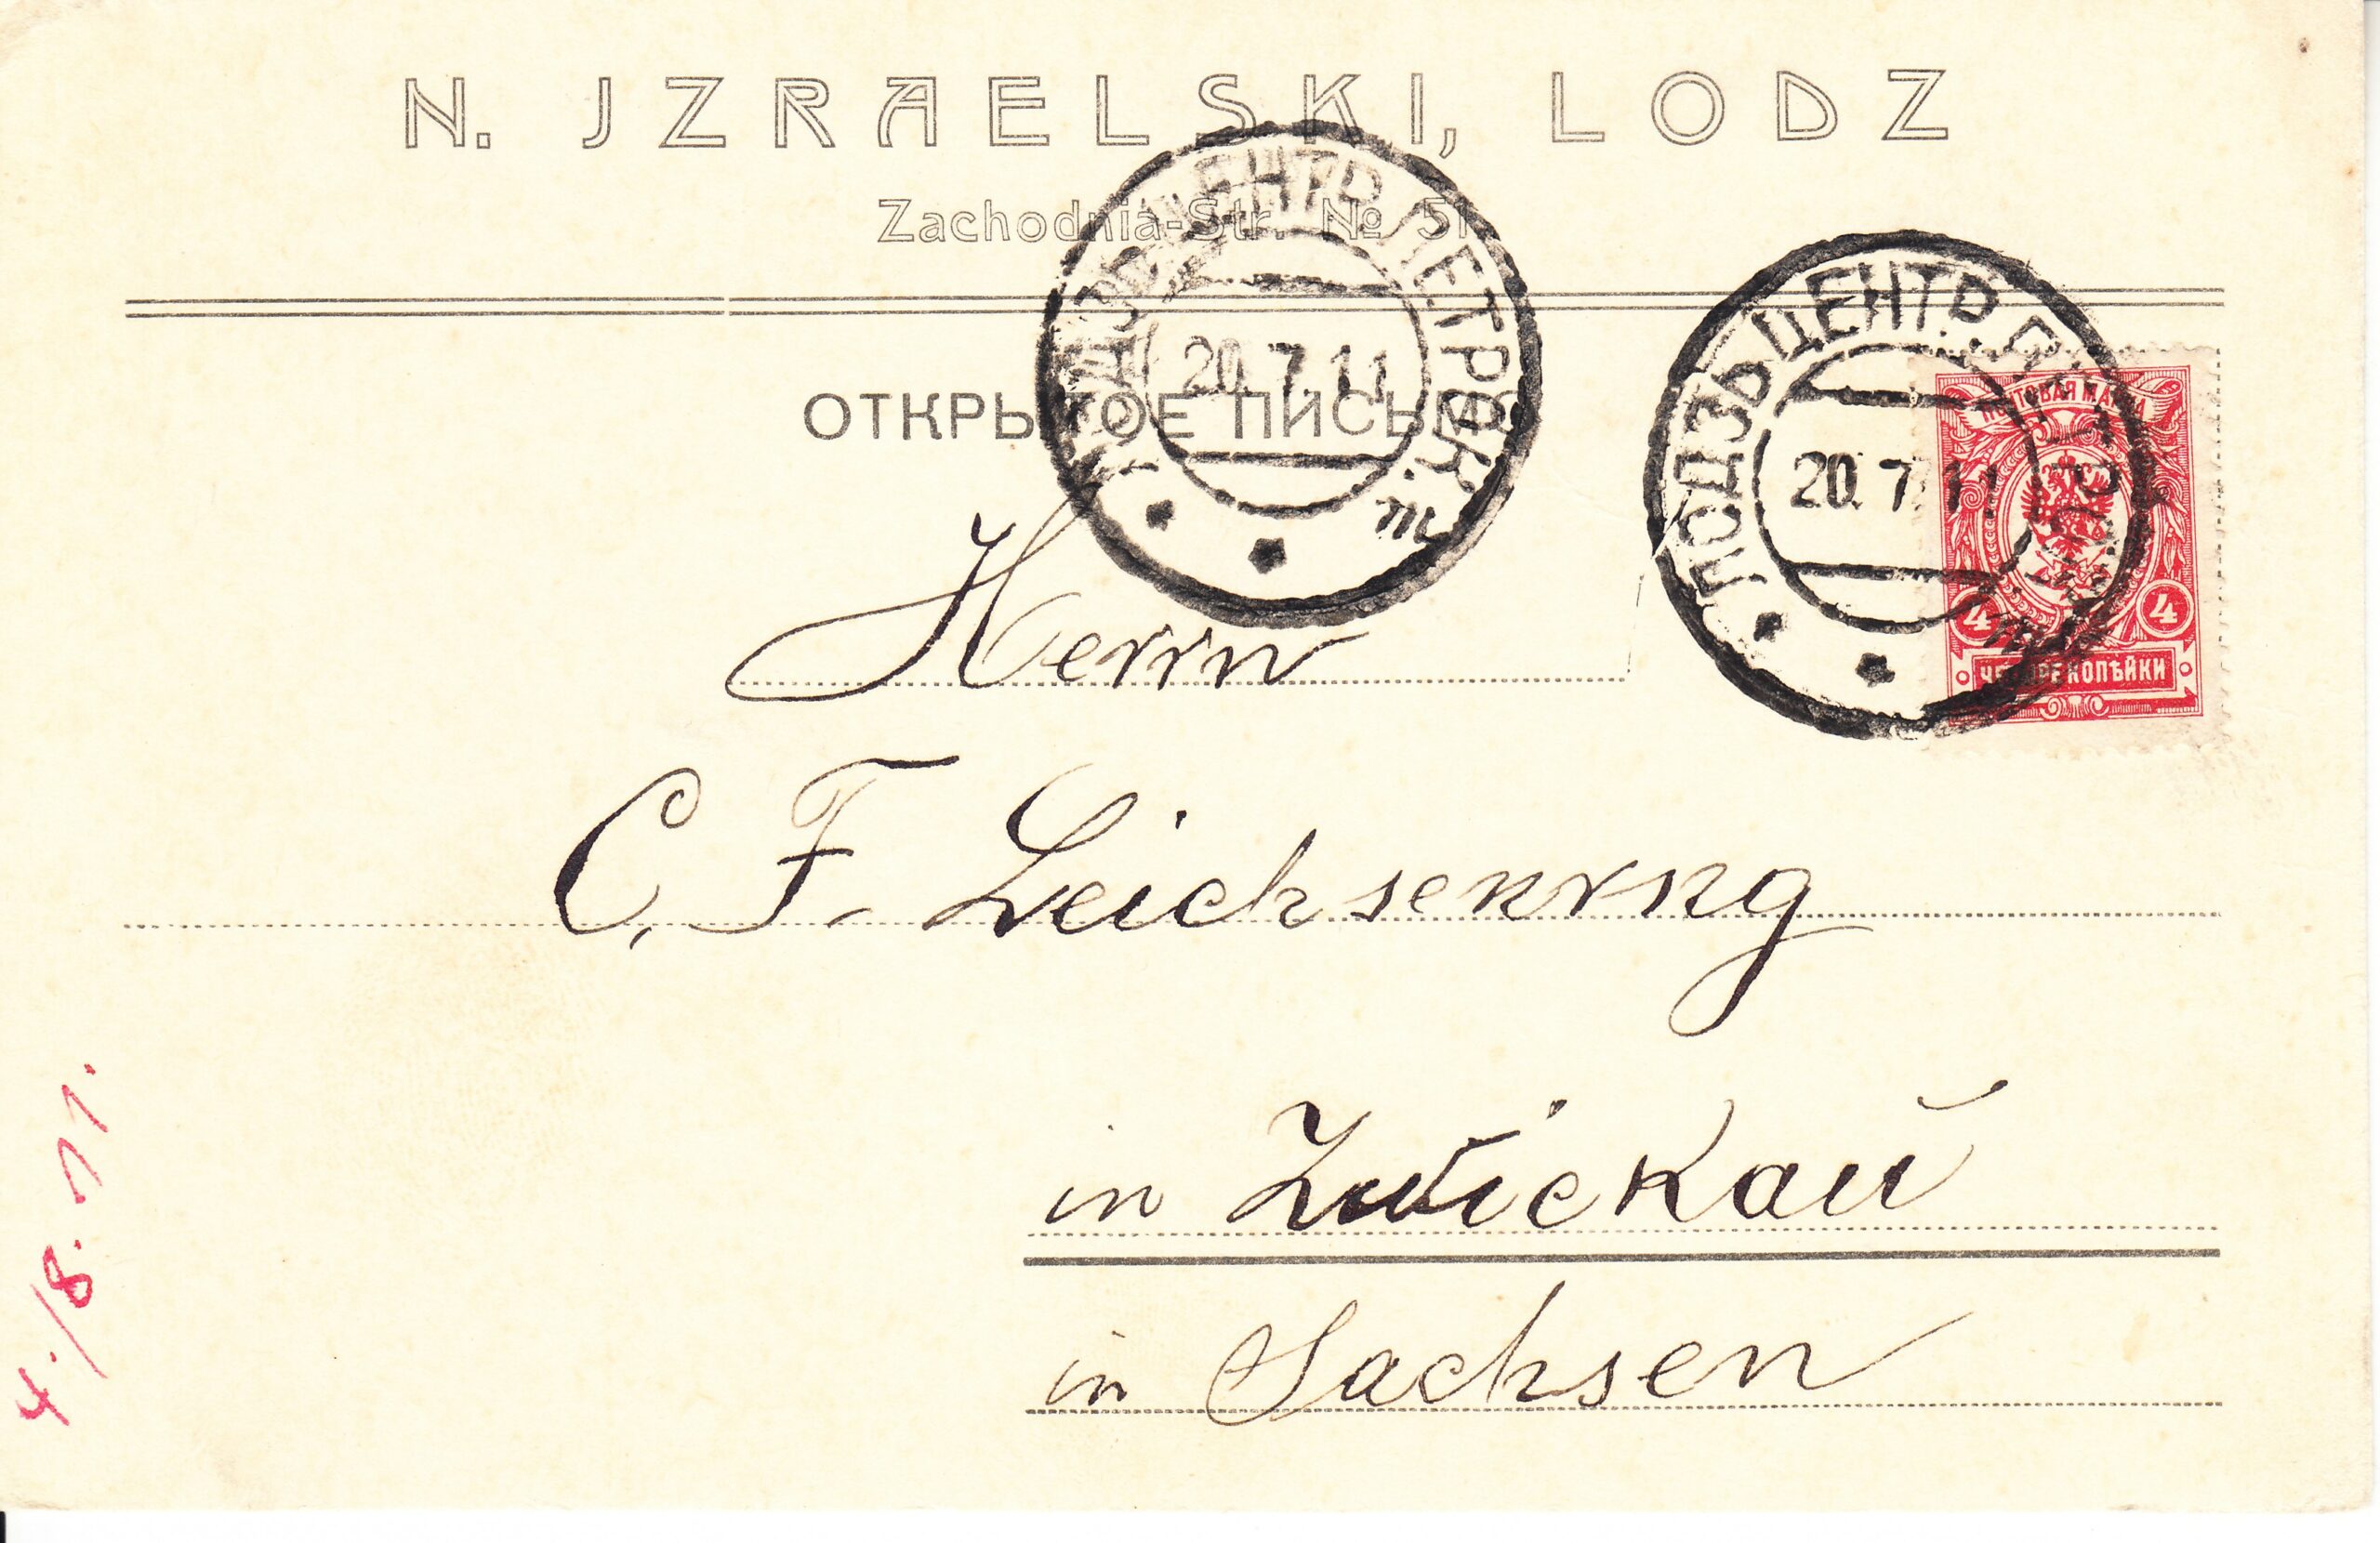 N. JZRAELSKI, LODZ
Zachodnia-Str. № 51
ОТКРЫТОЕ ПИСЬМО
ЛОДЗЬ ЦЕНТР. ПЕТРОК.
20.7.11
ЛОДЗЬ ЦЕНТР. ПЕТРОК.
20.7.11
ПОЧТОВАЯ МАРКА
4 4
ЧЕТЫРЕ КОПѢЙКИ
Herrn
C. F. Leichsenring
in Zwickau
in Sachsen
4./8. 11.